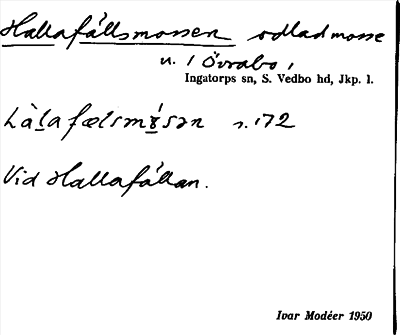 Hallafállsmossen odlad mosse
u. 1 Övrabo,
Ingatorps sn, S. Vedbo hd, Jkp. l.
Làlafælsmɤ́sən s. 172
Vid Hallafállan.
Ivar Modéer 1950